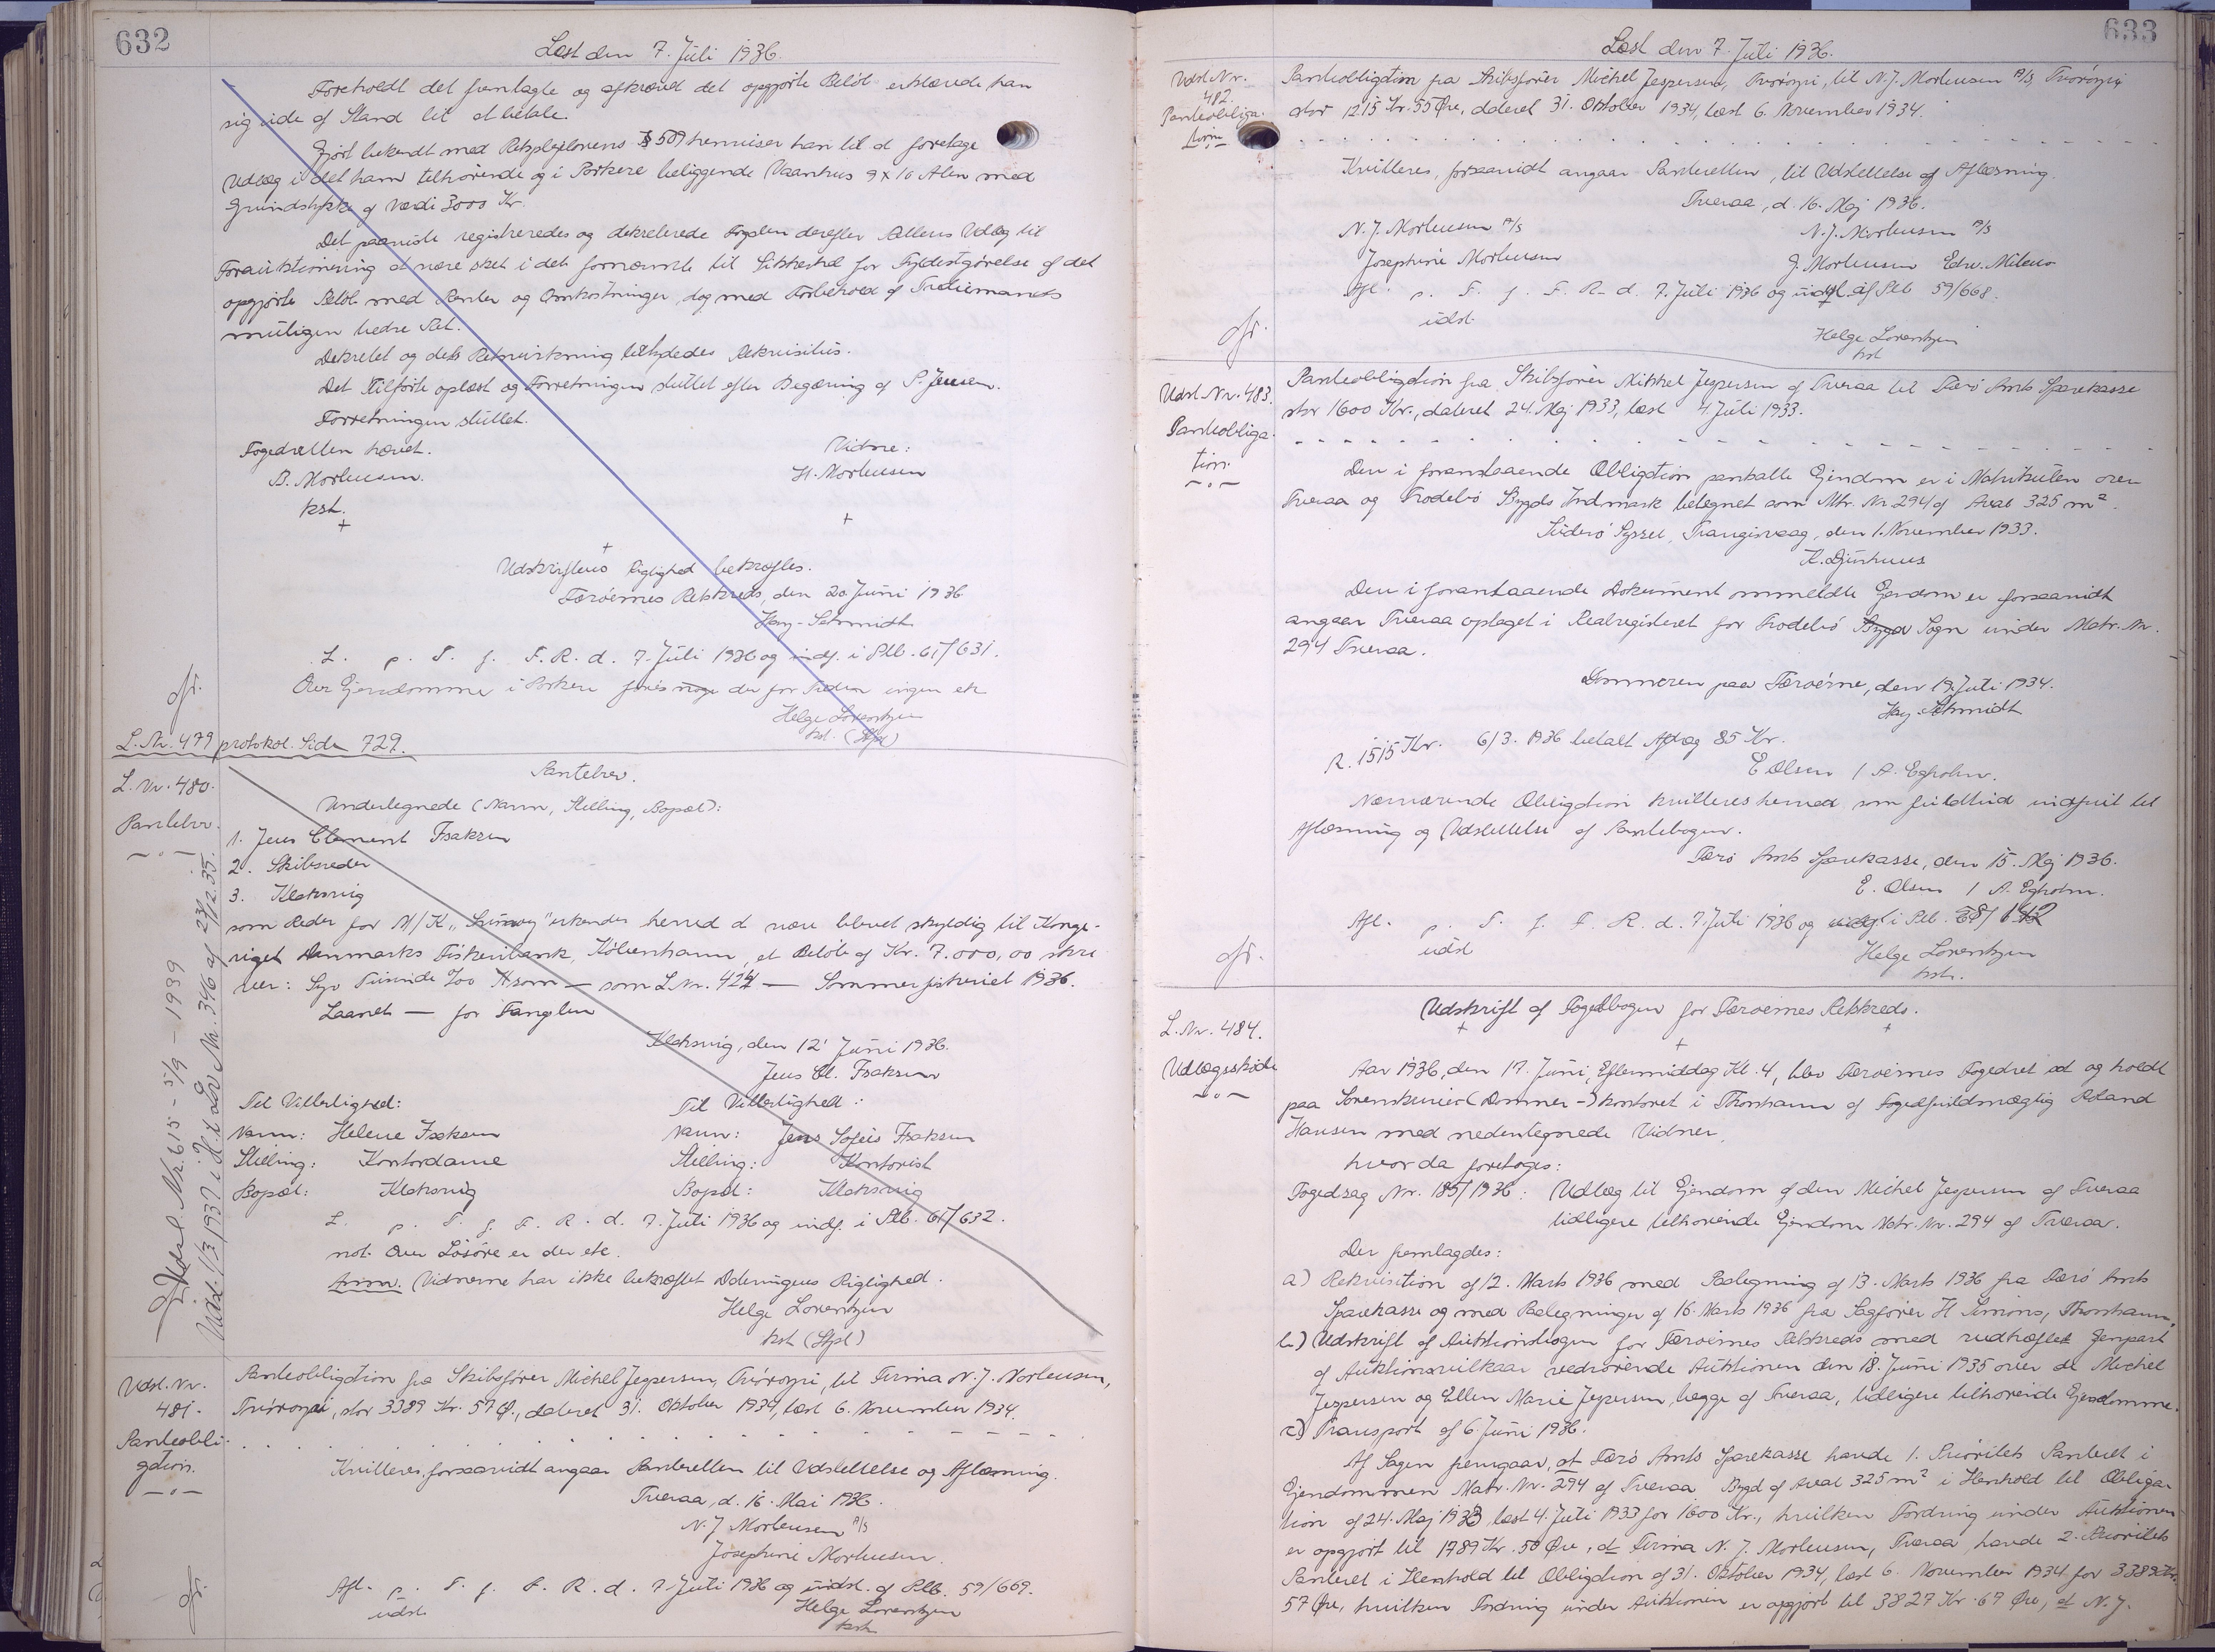 632
Læst den 7. Juli 1936.
Foreholdt det fremlagte og afkrævet det opgjorte Beløb erklærede han
sig ude af Stand til at betale.
Gjort bekendt med Retsplejelovens § 509 henviser han til at foretage
Udlæg i det ham tilhørende og i Porkere beliggende Vaanhus 9 x 10 Alen med
Grundstykke af Værdi 3000 Kr.
Det paaviste registreredes og dekreterede Fogden derefter Udlæg til
Forauktionering at være sket i det fornævnte til Sikkerhed for Fyldestgørelse af det
opgjorte Beløb med Renter og Omkostninger, dog med Forbehold af Trediemands
muligen bedre Ret.
Dekretet og dets Retsvirkning betydedes Rekvisitus.
Det Tilførte oplæst og Forretningen sluttet efter Begæring af P. Jensen.
Forretningen sluttet.
Fogedretten hævet.
Vidne:
B. Mortensen.
H. Mortensen
kst.
Udskriftens Rigtighed bekræftes.
Færøernes Retskreds, den 20 Juni 1936
Hay-Schmidt
L. p. T. f. F. R. d. 7. Juli 1936 og indf. i Ptb. 61/631.
Over Ejendomme i Porkere føres noge der for Tiden ingen etc
Helge Lorentzen
kst. (Stpl)
cfr.
L. Nr. 479 protokol. Side 729.
L. Nr. 480.
Pantebrev.
Pantebrev.
Undertegnede (Navn, Stilling, Bopæl):
1. Jens Clement Isaksen
2. Skibsreder
3. Klaksvig
som Reder for M/K „ " erkender herved at være blevet skyldig til Konge-
riget Danmarks Fiskeribank, København, et Beløb af Kr. 7.000,00 skri
ver: Syv Tusinde 7oo H som — som L Nr. 424 — Sommerfiskeriet 1936.
Laanet — for Fangsten
Klaksvig, den 12' Juni 1936.
Jens Cl. Isaksen
Til Vitterlighed:
Til Vitterlighed:
Navn: Helene Isaksen
Navn: Jens Sofus Isaksen
Stilling: Kontordame
Stilling: Kontorist
Bopæl: Klaksvig
Bopæl: Klaksvig
L. p. T. f. F. R. d. 7. Juli 1936 og indf. i Ptb. 61/632.
not. Over Løsøre er der etc.
Anm. Vidnerne har ikke bekræftet Dateringens Rigtighed.
Helge Lorentzen
kst (Stpl)
Udsl. Nr. 615 - 5/9 - 1939
Udsl. 1/3 1937 i H. t. Lov Nr. 346 af 23/12.35.
Udsl. Nr.
481.
Panteobli-
gation.
Panteobligation fra Skibsfører Michel Jespersen, Tvöroyri, til Firma N. J. Mortensen,
Tvöroyri, stor 3389 Kr. 57 Ø., dateret 31. Oktober 1934, læst 6. November 1934.
Kvitteres, forsaavidt angaar Panteretten til Udslettelse og Aflæsning.
Tveraa, d. 16. Mai 1936.
N. J Mortensen A/S
Josephine Mortensen.
Afl. p. T. f. F. R. d. 7. Juli 1936 og udsl. af Ptb. 59/669.
udsl.
Helge Lorentzen
kst.
cfr.
633
Læst den 7. Juli 1936.
Udsl. Nr.
482.
Panteobliga-
tion
Panteobligation fra Skibsfører Michel Jespersen, Tvöroyri, til N. J. Mortensen A/S, Tvöroyri,
stor 1215 Kr. 55 Øre, dateret 31. Oktober 1934, læst 6. November 1934.
Kvitteres, forsaavidt angaar Panteretten, til Udslettelse af Aflæsning.
Tveraa, d. 16. Maj 1936.
N. J. Mortensen A/S
N. J. Mortensen A/S
Josephine Mortensen
J. Mortensen
Afl. p. T. f. F. R. d. 7. Juli 1936 og af Ptb 59/668.
udsl.
Helge Lorentzen
kst
cfr.
Udsl. Nr. 483.
Panteobliga-
tion.
Panteobligation fra Skibsfører Mikkel Jespersen af Tveraa til Færø Amts Sparekasse
stor 1600 Kr., dateret 24. Maj 1933, læst 4. Juli 1933.
Den i foranstaaende Obligation pantsatte Ejendom er i Matrikulen over
Tveraa og Frodebø Bygds Indmark betegnet som Mtr. Nr 294 af Areal 325 m².
Suderø Syssel, Trangisvaag, den 1. November 1933.
K. Djurhuus
Den i foranstaaende Dokument ommeldte Ejendom er forsaavidt
angaar Tveraa optaget i Realregisteret for Frodebø Bygd Sogn under Matr. Nr.
294 Tveraa.
Dommeren paa Færøerne, den 19. Juli 1934.
Hay Schmidt
R. 1515 Kr. 6/3. 1936 betalt Afdrag 85 Kr.
E Olsen / A. Egholm.
Nærværende Obligation kvitteres herved som fuldtud indfriet til
Aflæsning og Udslettelse af Pantebogen.
Færø Amts Sparekasse, den 15. Maj 1936.
E. Olsen / A. Egholm.
Afl. p. T. f. F. R. d. 7. Juli 1936 og i Ptb.
udsl
Helge Lorentzen
kst.
cfr.
L. Nr. 484.
Udlægsskøde
Udskrift af Fogedbogen for Færøernes Retskreds.
Aar 1936, den 17. Juni, Eftermiddag Kl. 4, blev Færøernes Fogedret sat og holdt
paa Sorenskriver (Dommer-) kontoret i Thorshavn af Fogedfuldmægtig Roland
Hansen med nedentegnede Vidner,
hvor da foretoges:
Fogedsag Nr. 185/1936: Udlæg til Ejendom af den Michel Jespersen af Tveraa
tidligere tilhørende Ejendom Matr. Nr. 294 af Tveraa.
Der fremlagdes:
a) Rekvisition af 12. Marts 1936 med Paategning af 13. Marts 1936 fra Færø Amts
Sparekasse og med Paategninger af 16. Marts 1936 fra Sagfører H Simons, Thorshavn,
b.) Udskrift af Auktionsbogen for Færøernes Retskreds med vedhæftet Genpart
af Auktionsvilkaar vedrørende Auktionen den 18. Juni 1935 over de Michel
Jespersen og Ellen Marie Jespersen, begge af Tveraa, tidligere tilhørende Ejendomme.
c) Transport af 6 Juni 1936.
Af Sagen fremgaar, at Færø Amts Sparekasse havde 1. Prioritets Panteret i
Ejendommen Matr. Nr. 294 af Tveraa Bygd af Areal 325 m² i Henhold til Obliga-
tion af 24. Maj 1933, læst 4. Juli 1933 for 1600 Kr., hvilken Fordring under Auktionen
er opgjort til 1789 Kr. 50 Øre, at Firma N. J. Mortensen, Tveraa, havde 2. Prioritets
Panteret i Henhold til Obligation af 31. Oktober 1934, læst 6. November 1934 for 3389 Kr.
57 Øre, hvilken Fordring under Auktionen er opgjort til 3827 Kr. 67 Øre, at N. J.